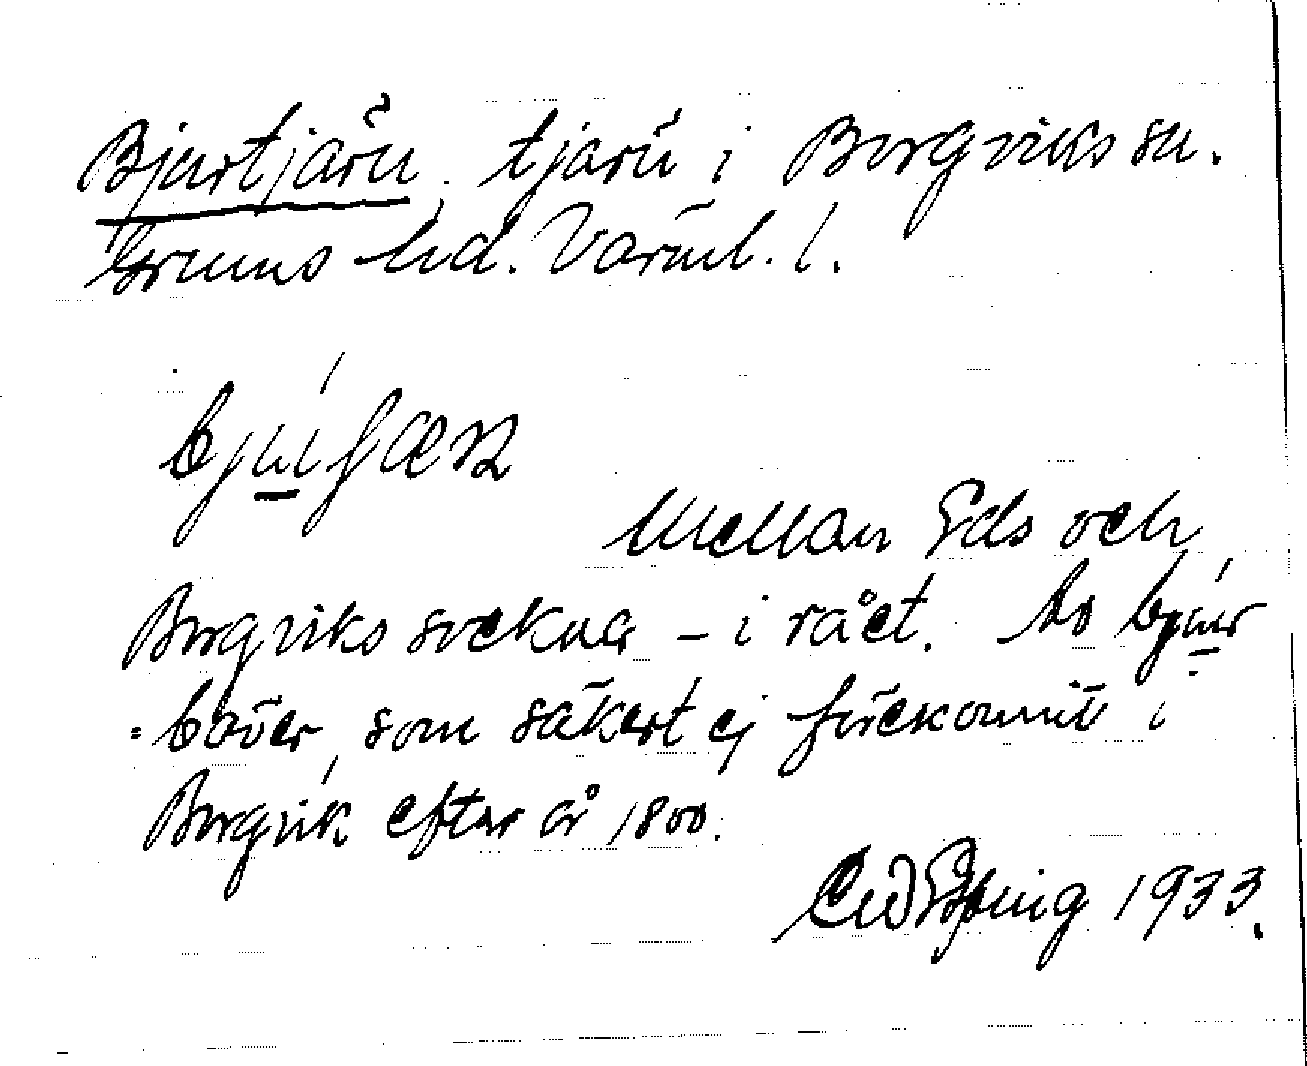 Bjurtjärn, tjärn i Borgviks sn.
Grums hd. Värml. l.
Mellan Eds och
Borgviks socknar – i rået. Av bjur
= bäver, som säkert ej förekommit i
Borgvik efter år 1800.
1933.